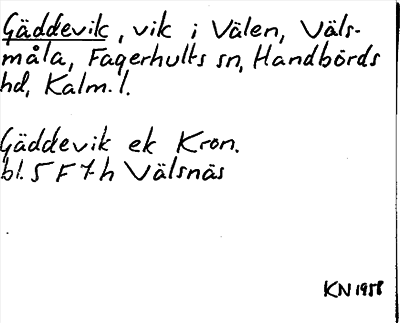 Gäddevik, vik i Välen, Väls-
måla, Fagerhults sn, Handbörds
hd, Kalm. l.
Gäddevik ek Kron.
bl. 5 F 7 h Välsnäs
KN 1958